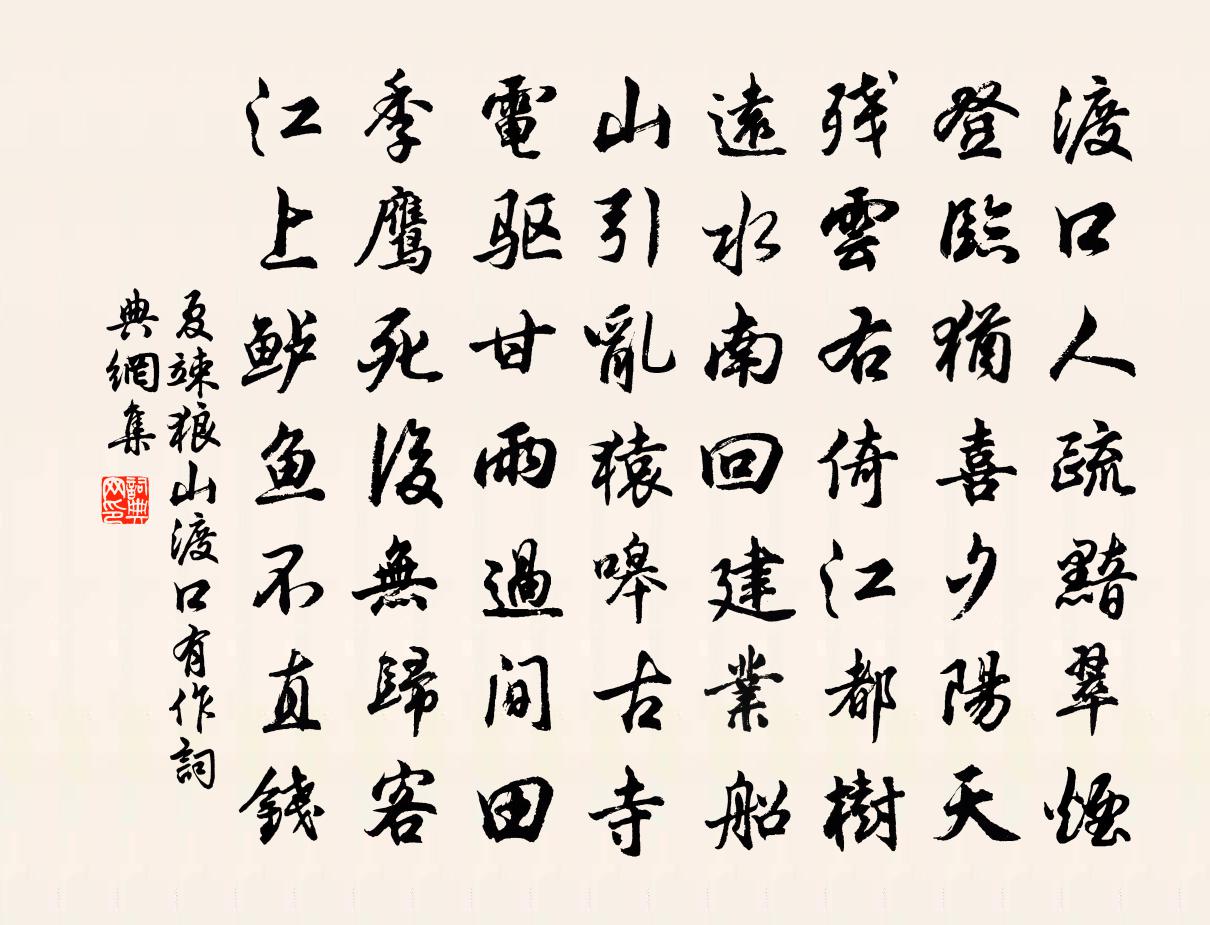 渡口人疏黯翠煙
登臨猶喜夕陽天
残雲右倚江都樹
遠水南回建業船
山引亂猿嗥古寺
電驱甘雨過閒田
季鹰死後無歸客
江上鲈魚不直錢
夏竦狼山渡口有作詞
典網集
詞典网印